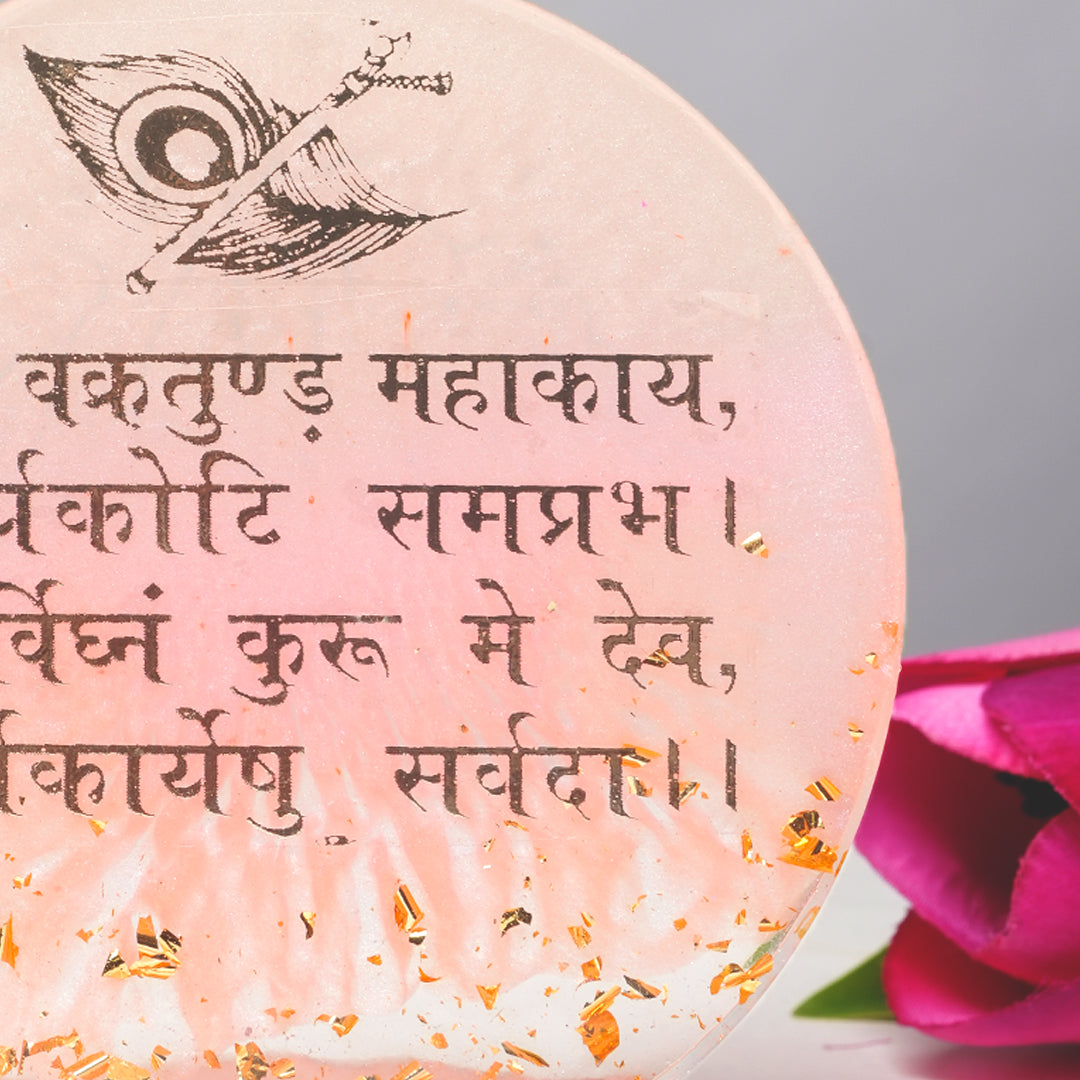 वक्रतुण्ड़ महाकाय,
र्यकोटि समप्रभ।
र्वेघ्नं कुरू मे देव,
र्वकार्येषु सर्वदा।।